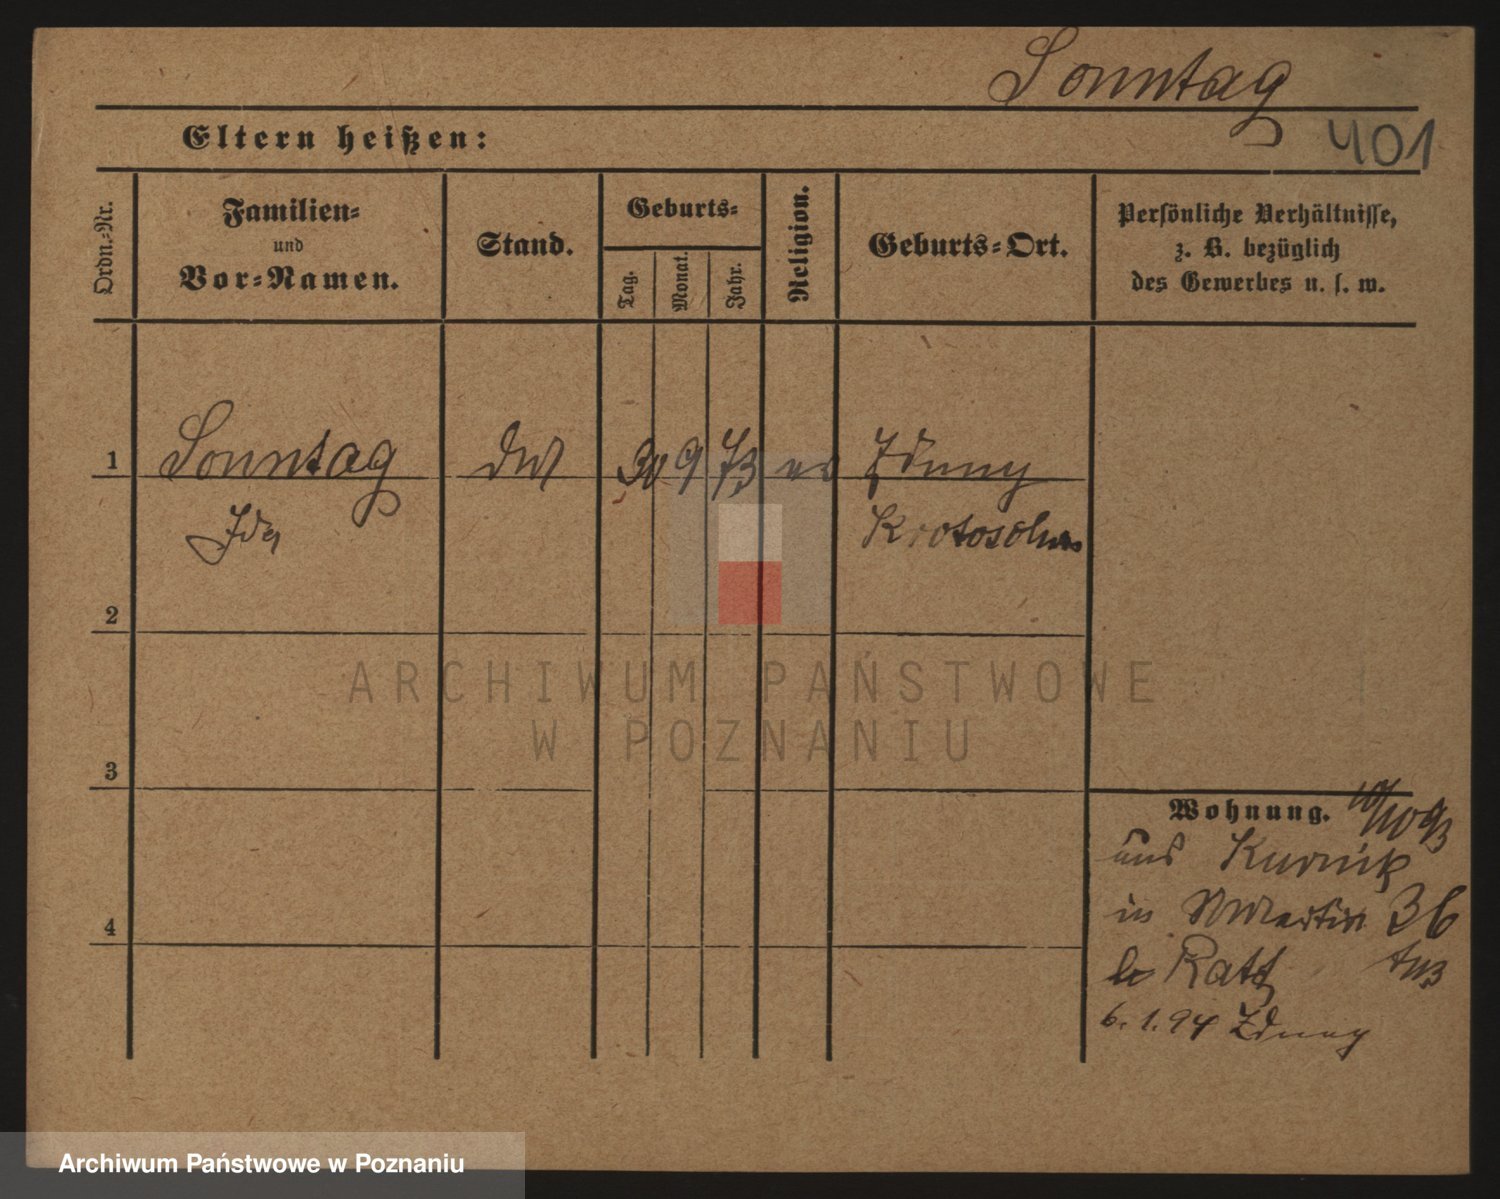 Sonntag
401
Eltern heißen:
Ordn.-Nr.
Familien-
und
Vor-Namen.
Stand.
Geburts-
Tag.
Monat.
Jahr.
Religion.
Geburts-Ort.
Persönliche Verhältnisse,
z. B. bezüglich
des Gewerbes u. s. w.
1
Sonntag
30 9 73
Zduny
Ida
Krotoschin
2
3
4
Wohnung.
aus Kurnik
in 36
6.1.94 Zduny
ARCHIWUM PAŃSTWOWE
W POZNANIU
Archiwum Państwowe w Poznaniu